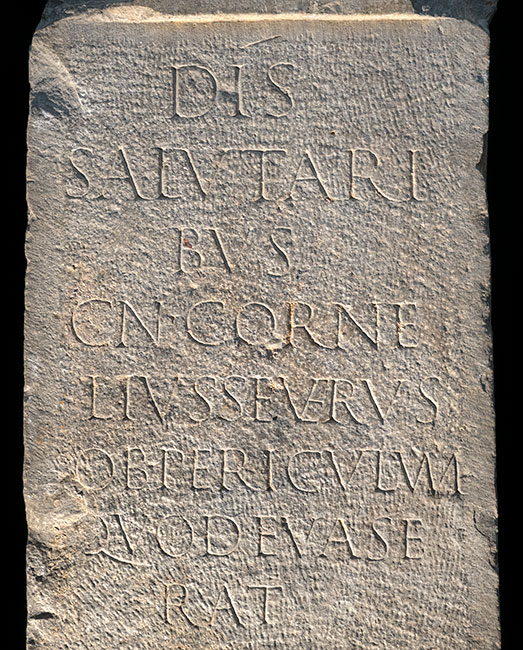 DIS
SALVTARI
BVS
CN·CORNE
LIVSSEVERVS
OBPERICVLVM
QVODEVASE
RAT